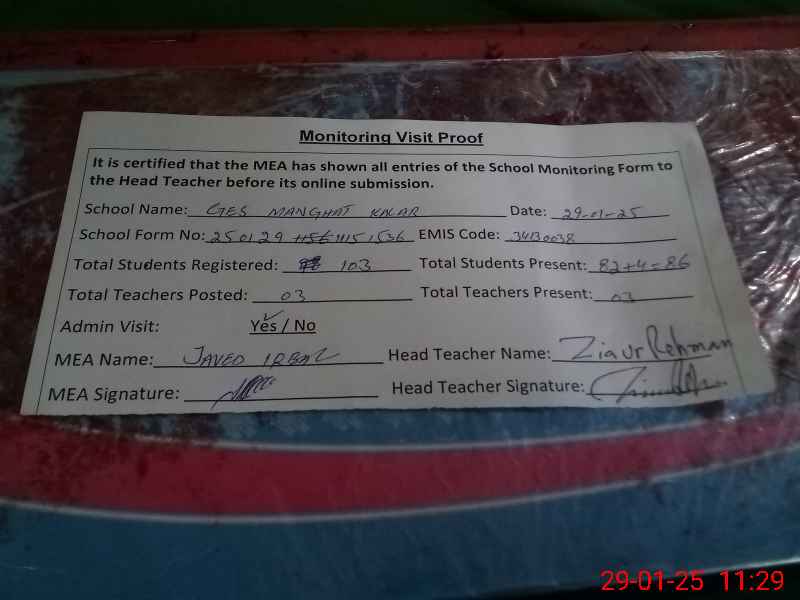 Monitoring Visit Proof
It is certified that the MEA has shown all entries of the School Monitoring Form to
the Head Teacher before its online submission.
School Name: GES MANGHAT KALAR Date: 29-01-25
School Form No: 250129 1151536 EMIS Code: 34130038
Total Students Registered: 103 Total Students Present: 82+4=86
Total Teachers Posted: 03 Total Teachers Present: 03
Admin Visit: Yes / No
MEA Name: JAVED IQBAL Head Teacher Name: Zia ur Rehman
MEA Signature: Head Teacher Signature:
29-01-25 11:29